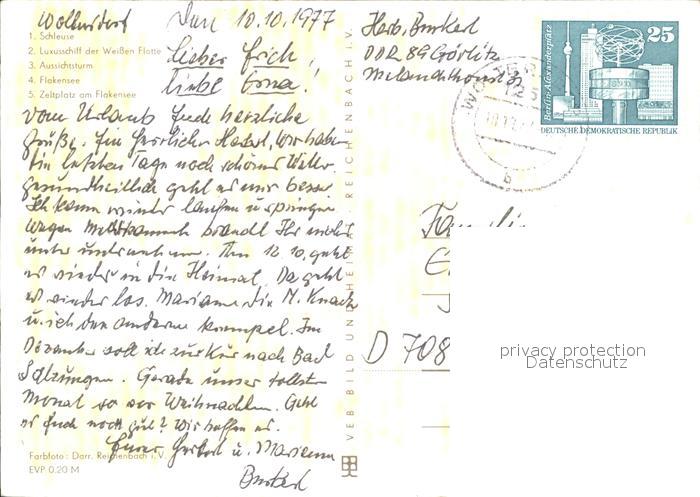 Woltersdorf den 10.10.1977
1. Schleuse
2. Luxusschiff der Weißen Flotte
3. Aussichtsturm
4. Flakensee
5. Zeltplatz am Flakensee
Lieber Erich,
liebe Erna!
Vom Urlaub Euch herzliche
Grüße. Ein herrlicher Herbst, wir haben
in letzten Tage noch schönes Wetter.
gesundheitlich geht es mir besser
Ich kann wieder laufen u. springen
wegen braucht Ihr nichts
unternehmen. Am 12.10. geht
es wieder in die Heimat. Da geht
es wieder los. Marianne die M. Knack
u. ich den anderen Krempel. Im
Dezember soll ich zur Kur nach Bad
Salzungen. Gerade unser tollster
Monat so vor Weihnachten. Geht
es Euch noch gut? Wir hoffen es.
Eure Herbert u. Marianne
Burkert
Farbfoto: Darr, Reichenbach i. V.
EVP 0.20 M
VEB BILD UND HEIMAT REICHENBACH i. V.
Herb. Burkert
DDR 89 Görlitz
Melanchthonstr.
Berlin-Alexanderplatz
25
DEUTSCHE DEMOKRATISCHE REPUBLIK
b
Familie
D 708
privacy protection
Datenschutz